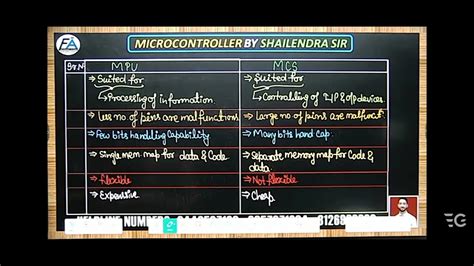 EA
MICROCONTROLLER BY SHAILENDRA SIR
Sr.N MPU MCS
→ Suited for → Suited for
→ Processing of information → Controlling of I/P & o/p devices
→ Less no of pins are malfunctions → Large no of pins are malfunct
→ Few bits handling capability → Many bits hand cap.
→ Single mem map for data & Code → Separate memory map for Code & data
→ flexible → Not flexible
→ Expensive → Cheap
HELPLINE NUMBERS
EG